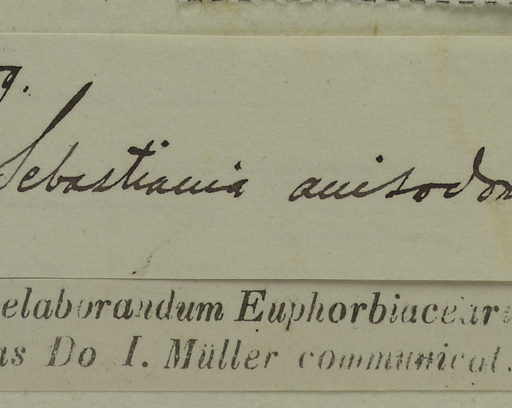 Sebastiania anisodon
elaborandum Euphorbiacear
as Do I. Müller communicat.